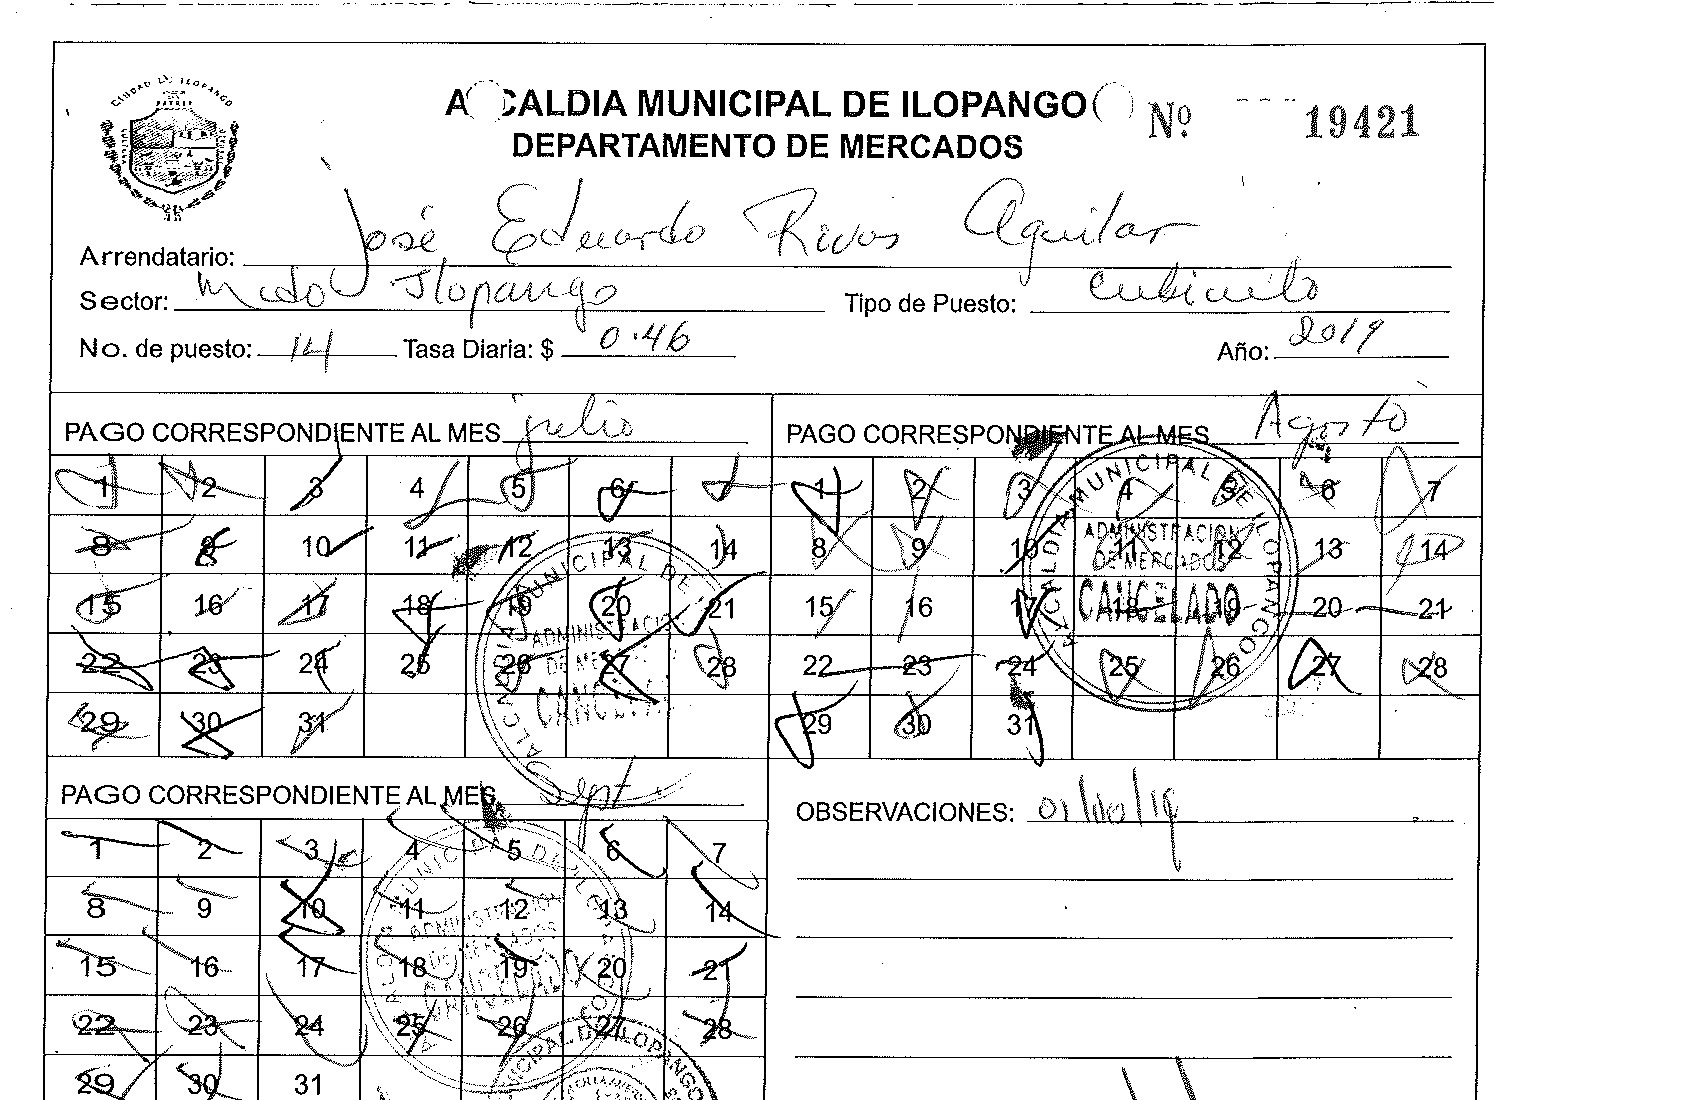 CIUDAD DE ILOPANGO
ALCALDIA MUNICIPAL DE ILOPANGO
Nº 19421
DEPARTAMENTO DE MERCADOS
Arrendatario: José Eduardo Rivas Aguilar
Sector: Mcdo Ilopango Tipo de Puesto: cubiculo
No. de puesto: 14 Tasa Diaria: $ 0.46 Año: 2019
PAGO CORRESPONDIENTE AL MES julio
1 2 3 4 5 6 7
8 9 10 11 12 13 14
15 16 17 18 19 20 21
22 23 24 25 26 27 28
29 30 31
ALCALDIA MUNICIPAL DE
ADMINISTRACIO
DE ME
CANCELA
PAGO CORRESPONDIENTE AL MES Agosto
1 2 3 4 5 6 7
8 9 10 11 12 13 14
15 16 17 18 19 20 21
22 23 24 25 26 27 28
29 30 31
ALCALDIA MUNICIPAL DE ILOPANGO
ADMINISTRACION
DE MERCADOS
CANCELADO
PAGO CORRESPONDIENTE AL MES Sept
1 2 3 4 5 6 7
8 9 10 11 12 13 14
15 16 17 18 19 20 21
22 23 24 25 26 27 28
29 30 31
ADMINISTRACION
DE MERCADOS
CANCELADO
OBSERVACIONES: 01/10/19